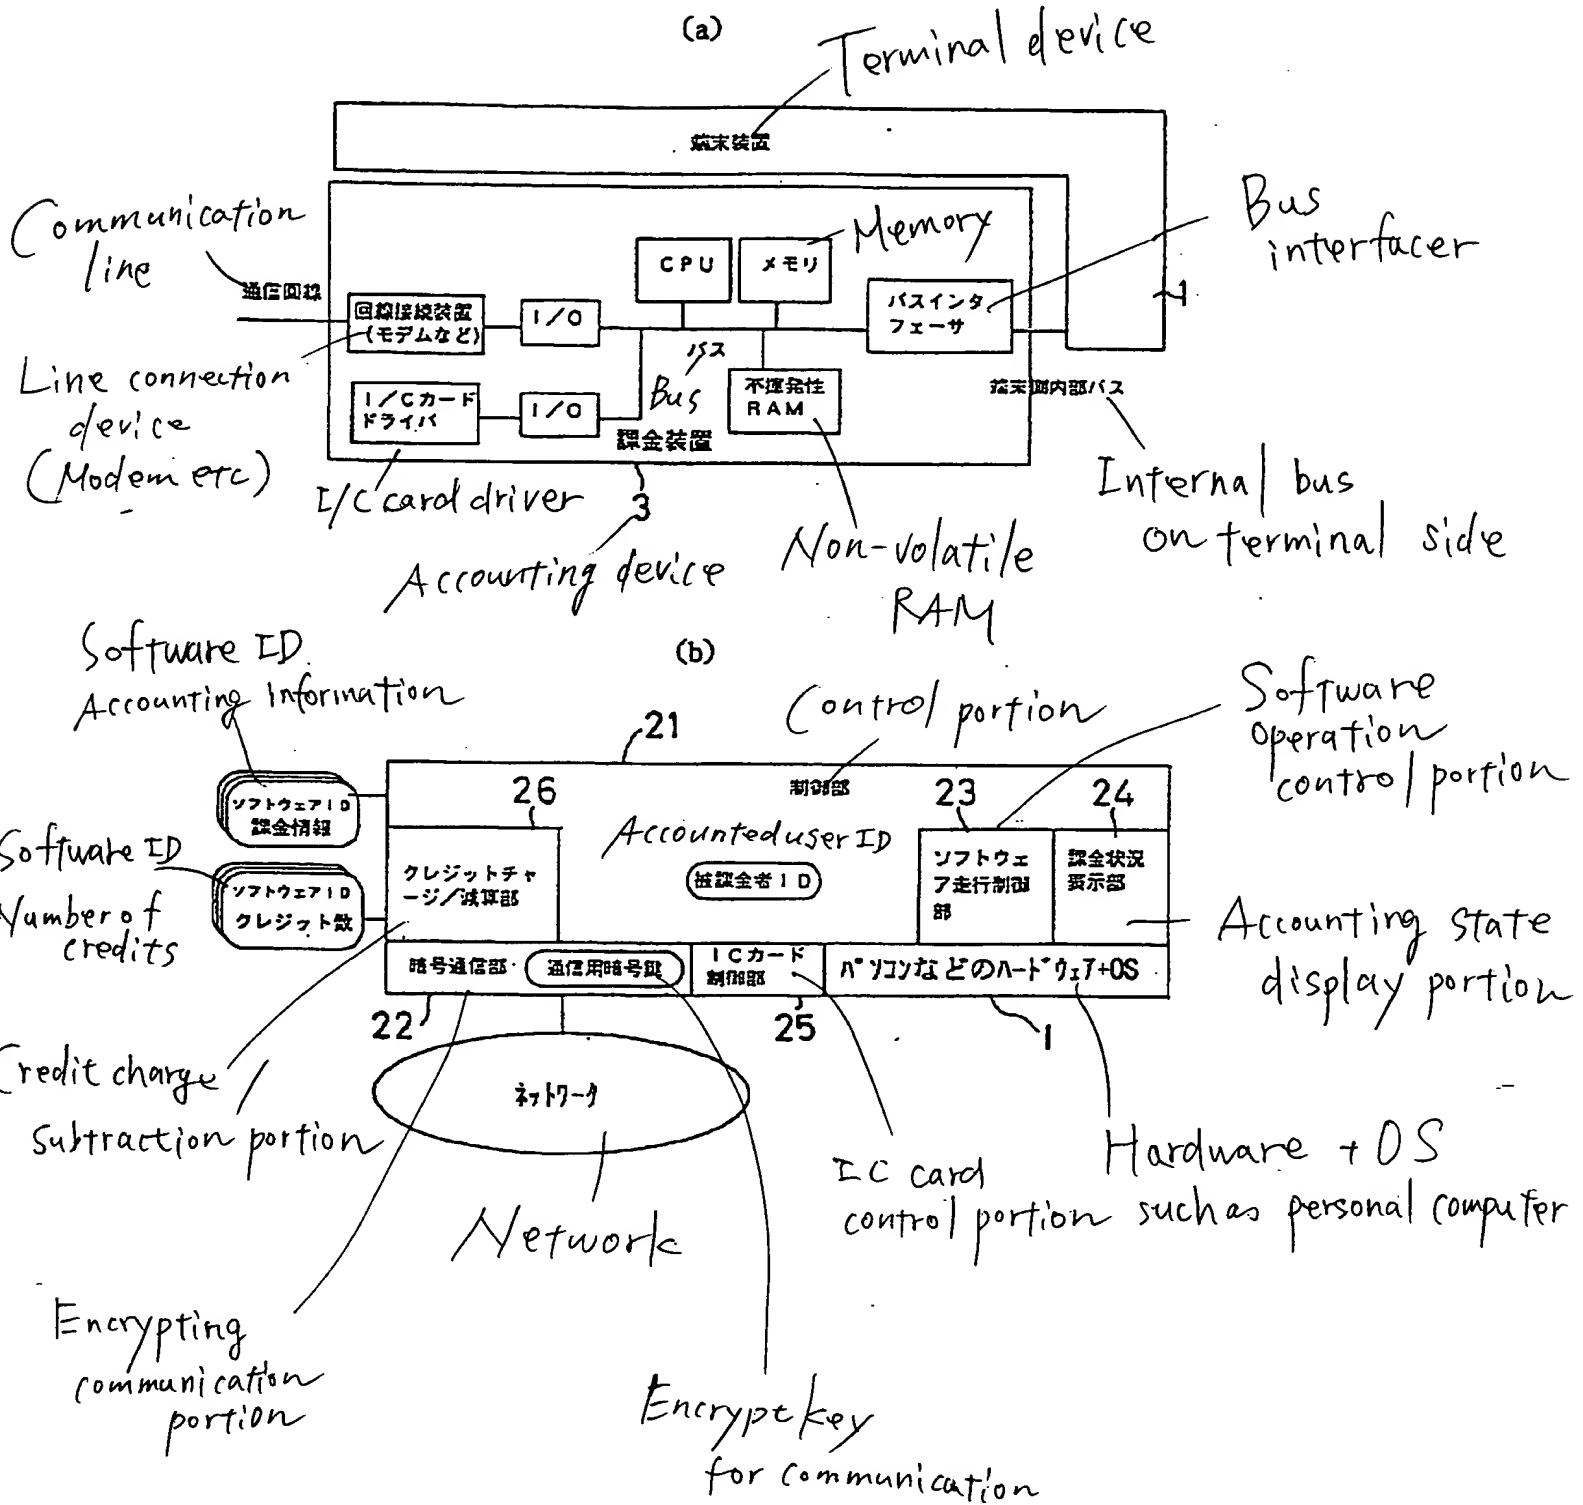 (a)
Terminal device
端末装置
Communication
line
通信回線
Memory
CPU
メモリ
Bus
interfacer
回線接続装置
(モデムなど)
I/O
バスインタ
フェーサ
1
Line connection
device
(Modem etc)
I/Cカード
ドライバ
I/O
バス
Bus
不揮発性
RAM
端末側内部バス
課金装置
I/C card driver
3
Accounting device
Non-volatile
RAM
Internal bus
on terminal side
(b)
Software ID
Accounting information
21
Control portion
Software
operation
control portion
ソフトウェアID
課金情報
26
制御部
23
24
Software ID
Number of
credits
ソフトウェアID
クレジット数
クレジットチャ
ージ/減算部
Accounted user ID
被課金者ID
ソフトウェ
ア走行制御
部
課金状況
表示部
Accounting state
display portion
暗号通信部
通信用暗号鍵
ICカード
制御部
パソコンなどのハードウェア+OS
22
25
1
Credit charge /
subtraction portion
ネットワーク
Network
IC card
control portion
Hardware + OS
such as personal computer
Encrypting
communication
portion
Encrypt key
for communication